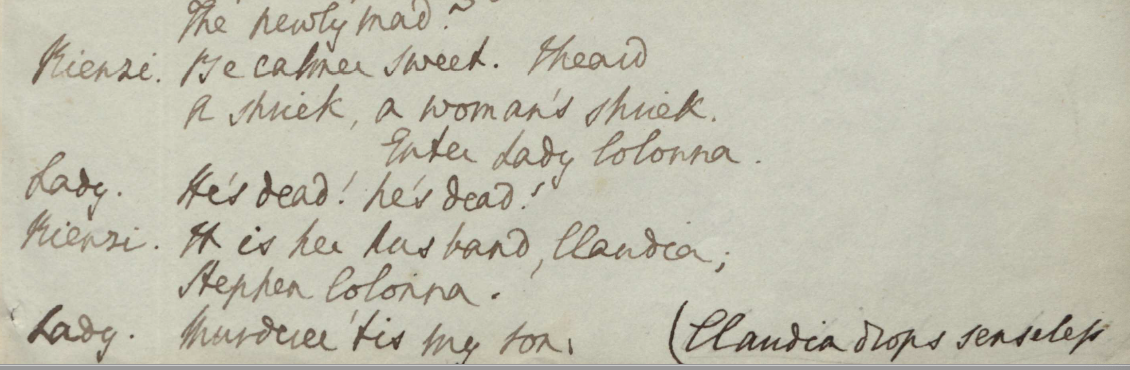 The newly mad.~
Rienzi. Be calmer sweet. I heard
A shriek, a woman's shriek.
Enter Lady Colonna.
Lady. He's dead! he's dead!
Rienzi. It is her husband, Claudia;
Stephen Colonna.
Lady. Murderer 'tis my son. (Claudia drops senseless